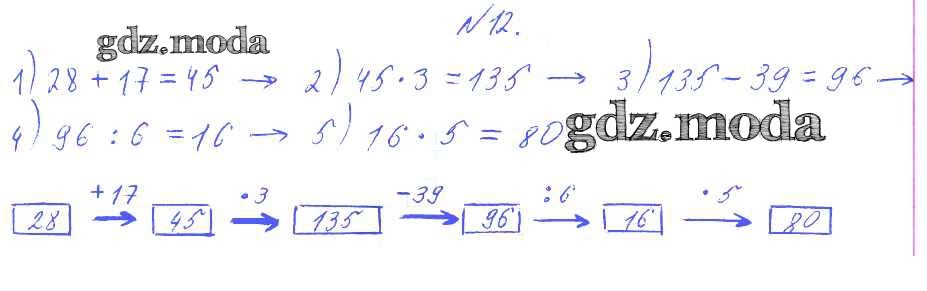 №12.
gdz.moda
1) 28 + 17 = 45 → 2) 45 · 3 = 135 → 3) 135 − 39 = 96 →
4) 96 : 6 = 16 → 5) 16 · 5 = 80
gdz.moda
+17 ·3 −39 :6 ·5
28 → 45 → 135 → 96 → 16 → 80